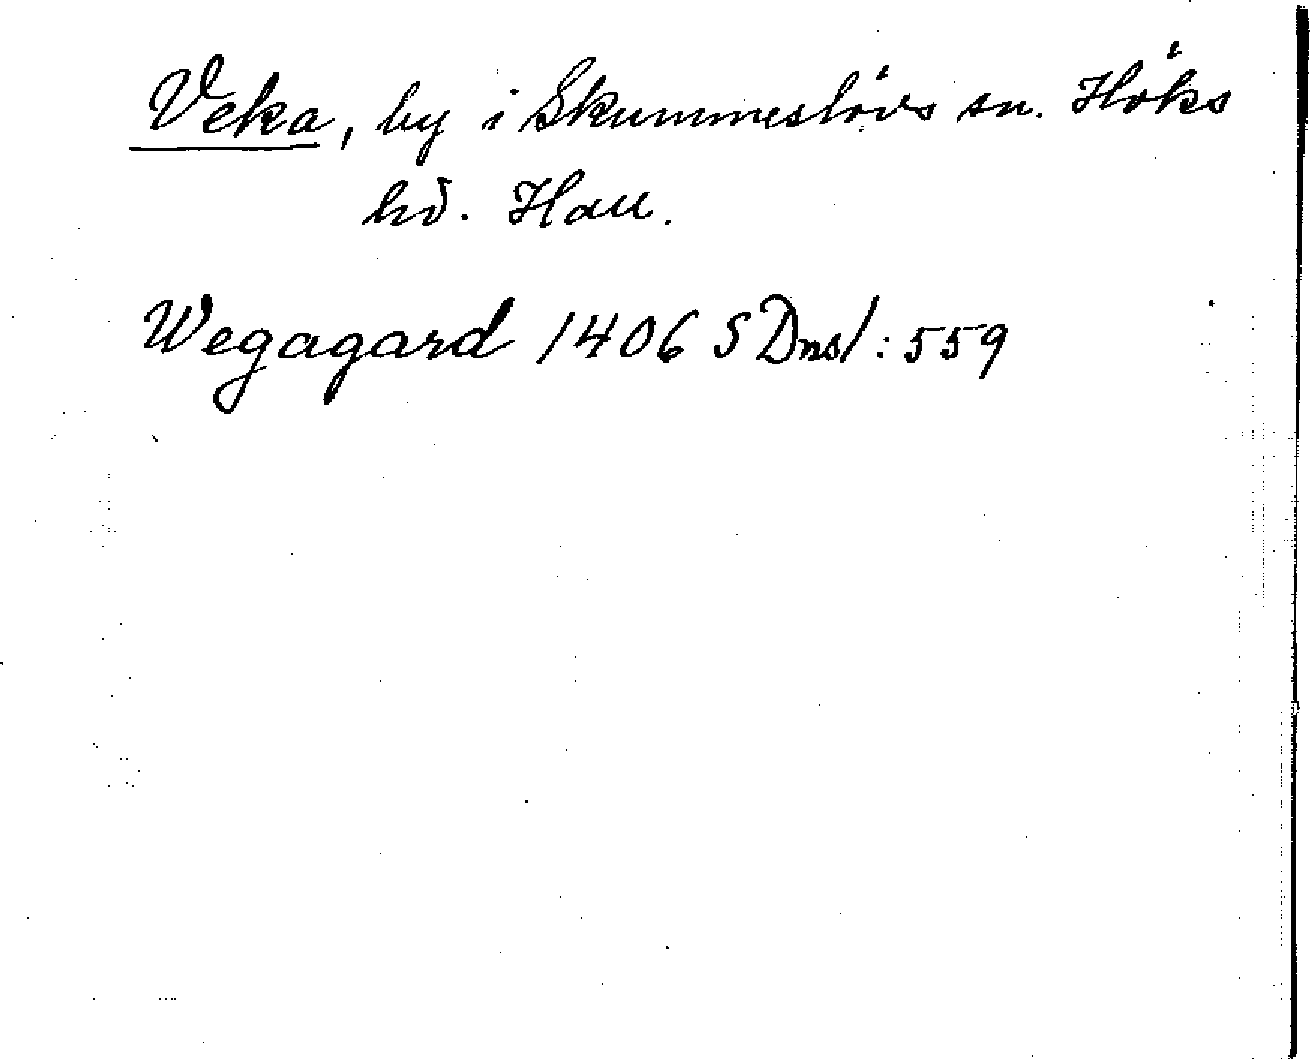 Veka, by i Skummeslövs sn. Höks
hd. Hall.
Wegagard 1406 SDns1:559